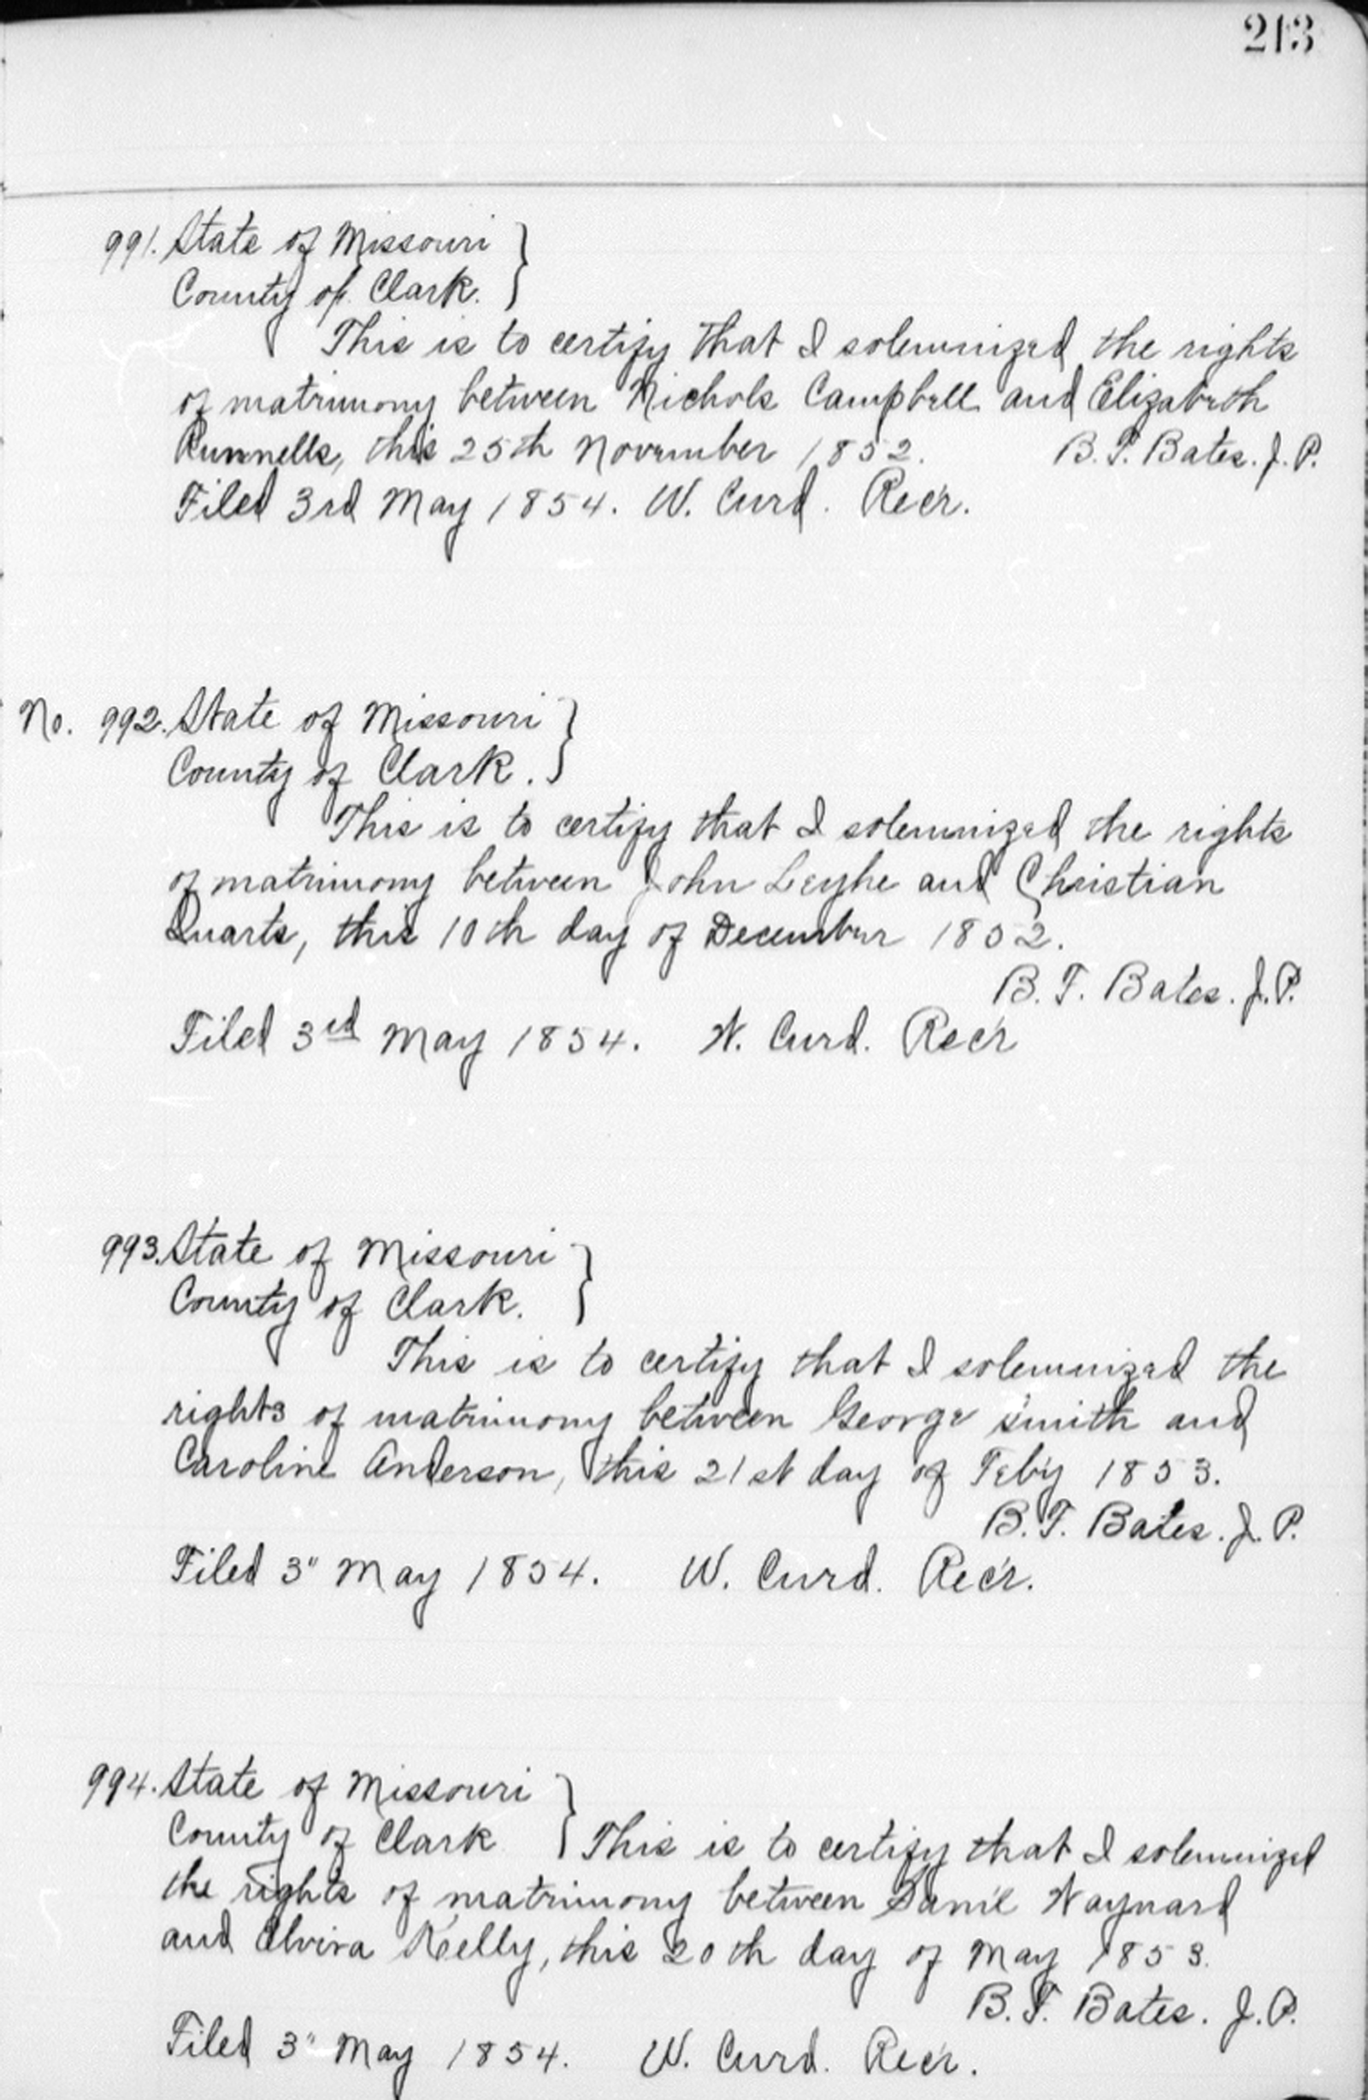 213
991. State of Missouri }
County of Clark. }
This is to certify that I solemnized the rights
of matrimony between Nichols Campbell and Elizabeth
Runnells, this 25th November 1852. B. F. Bates. J. P.
Filed 3rd May 1854. W. Curd. Rec'r.
No. 992. State of Missouri }
County of Clark. }
This is to certify that I solemnized the rights
of matrimony between John Leyhe and Christian
Quarts, this 10th day of December 1852.
B. F. Bates. J. P.
Filed 3rd May 1854. W. Curd. Rec'r
993. State of Missouri }
County of Clark. }
This is to certify that I solemnized the
rights of matrimony between George Smith and
Caroline Anderson, this 21st day of Feb'y 1853.
B. F. Bates. J. P.
Filed 3" May 1854. W. Curd. Rec'r.
994. State of Missouri }
County of Clark } This is to certify that I solemnized
the rights of matrimony between Waynard
and Elvira Kelly, this 20th day of May 1853.
B. F. Bates. J. P.
Filed 3" May 1854. W. Curd. Rec'r.